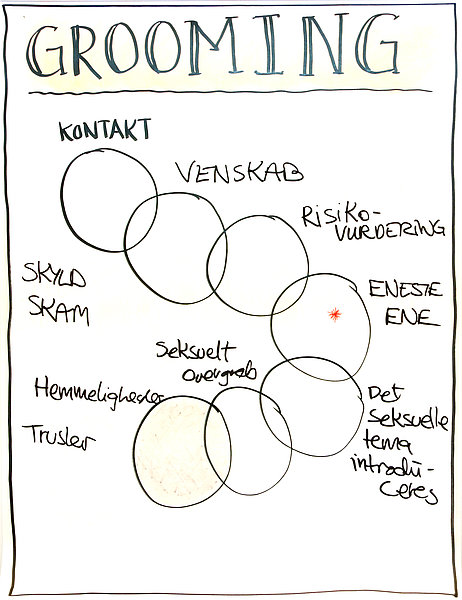 GROOMING
KONTAKT
VENSKAB
RISIKO-
VURDERING
ENESTE
ENE
SKYLD
SKAM
Seksuelt
overgreb
Hemmeligheder
Trusler
Det
seksuelle
tema
introdu-
ceres